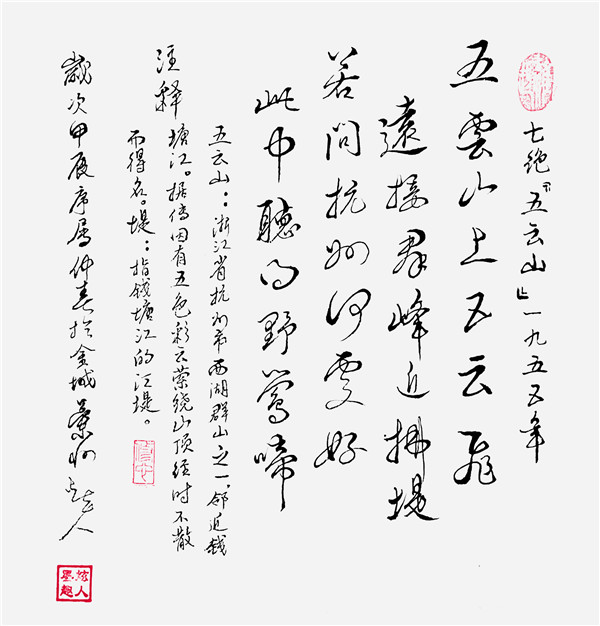 七绝『五云山』一九五五年
五雲山上五云飛
遠接群峰近拂堤
若問杭州何處好
此中聽得野鶯啼
注释
五云山：浙江省杭州市西湖群山之一，邻近钱
塘江。据传因有五色彩云萦绕山顶经时不散
而得名。堤：指钱塘江的江堤。
歲次甲辰序属仲春於金城